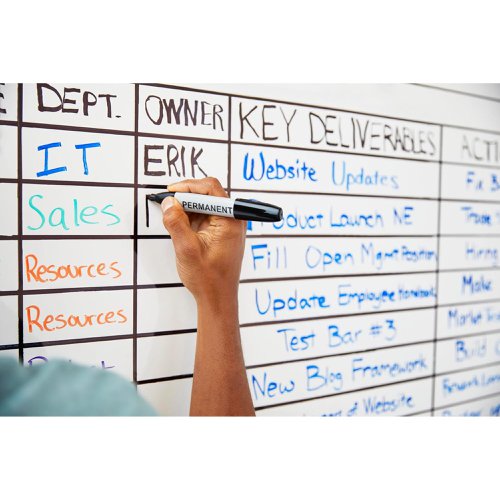 DEPT. OWNER KEY DELIVERABLES
IT ERIK Website Updates Fix
Sales PERMANENT Product Launch NE
Resources Fill Open Mgmt Position Hiring
Resources Update Employee Handbook Make
Test Bar #3 Market
New Blog Framework Build
of Website